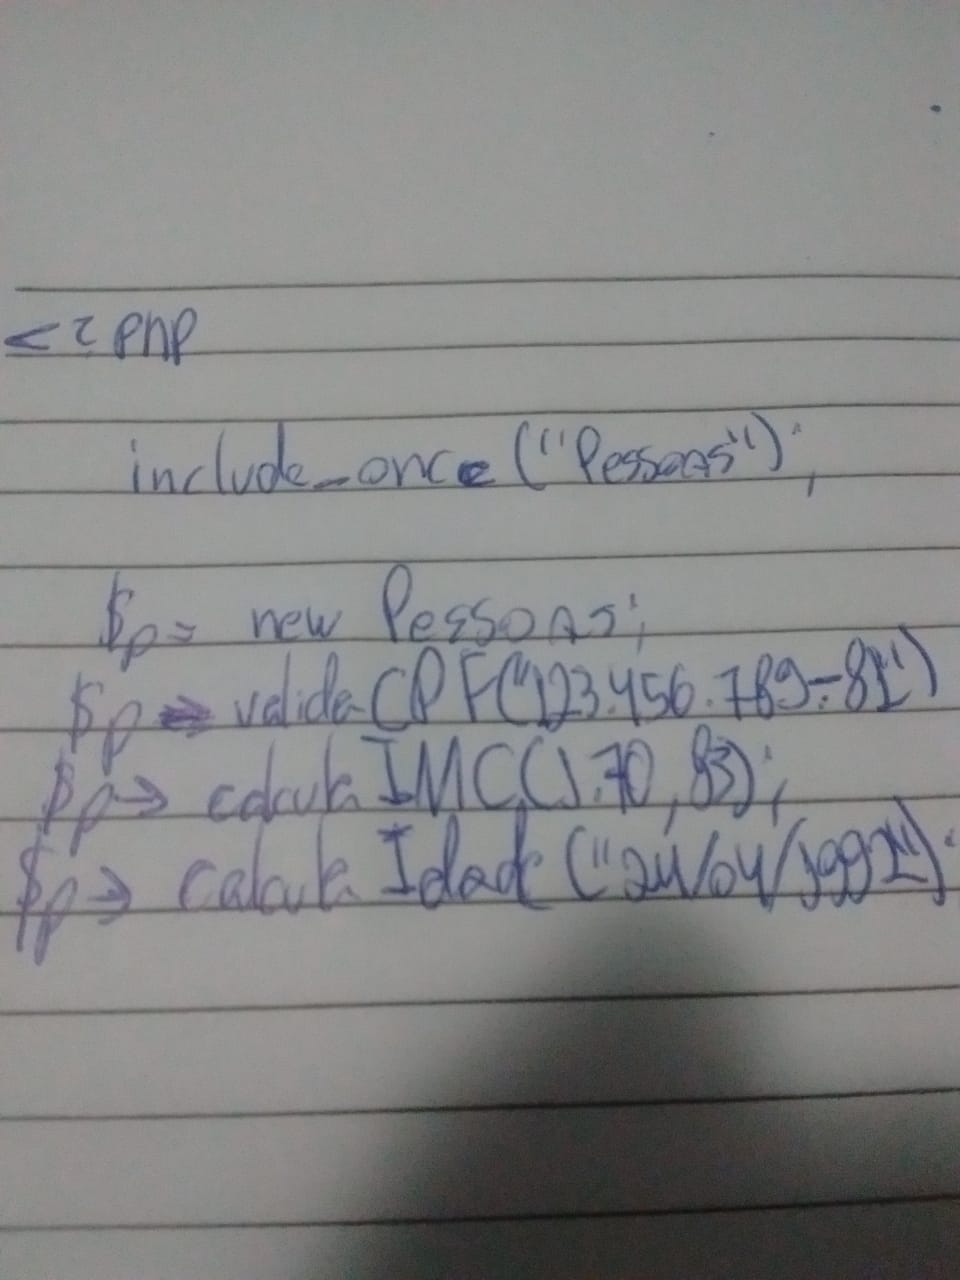 <?php
include_once ("Pessoas");
$p = new Pessoas;
$p -> validaCPF("123.456.789-81")
$p -> calcula IMC(1.70, 83);
$p -> calcula Idade ("24/04/1992");